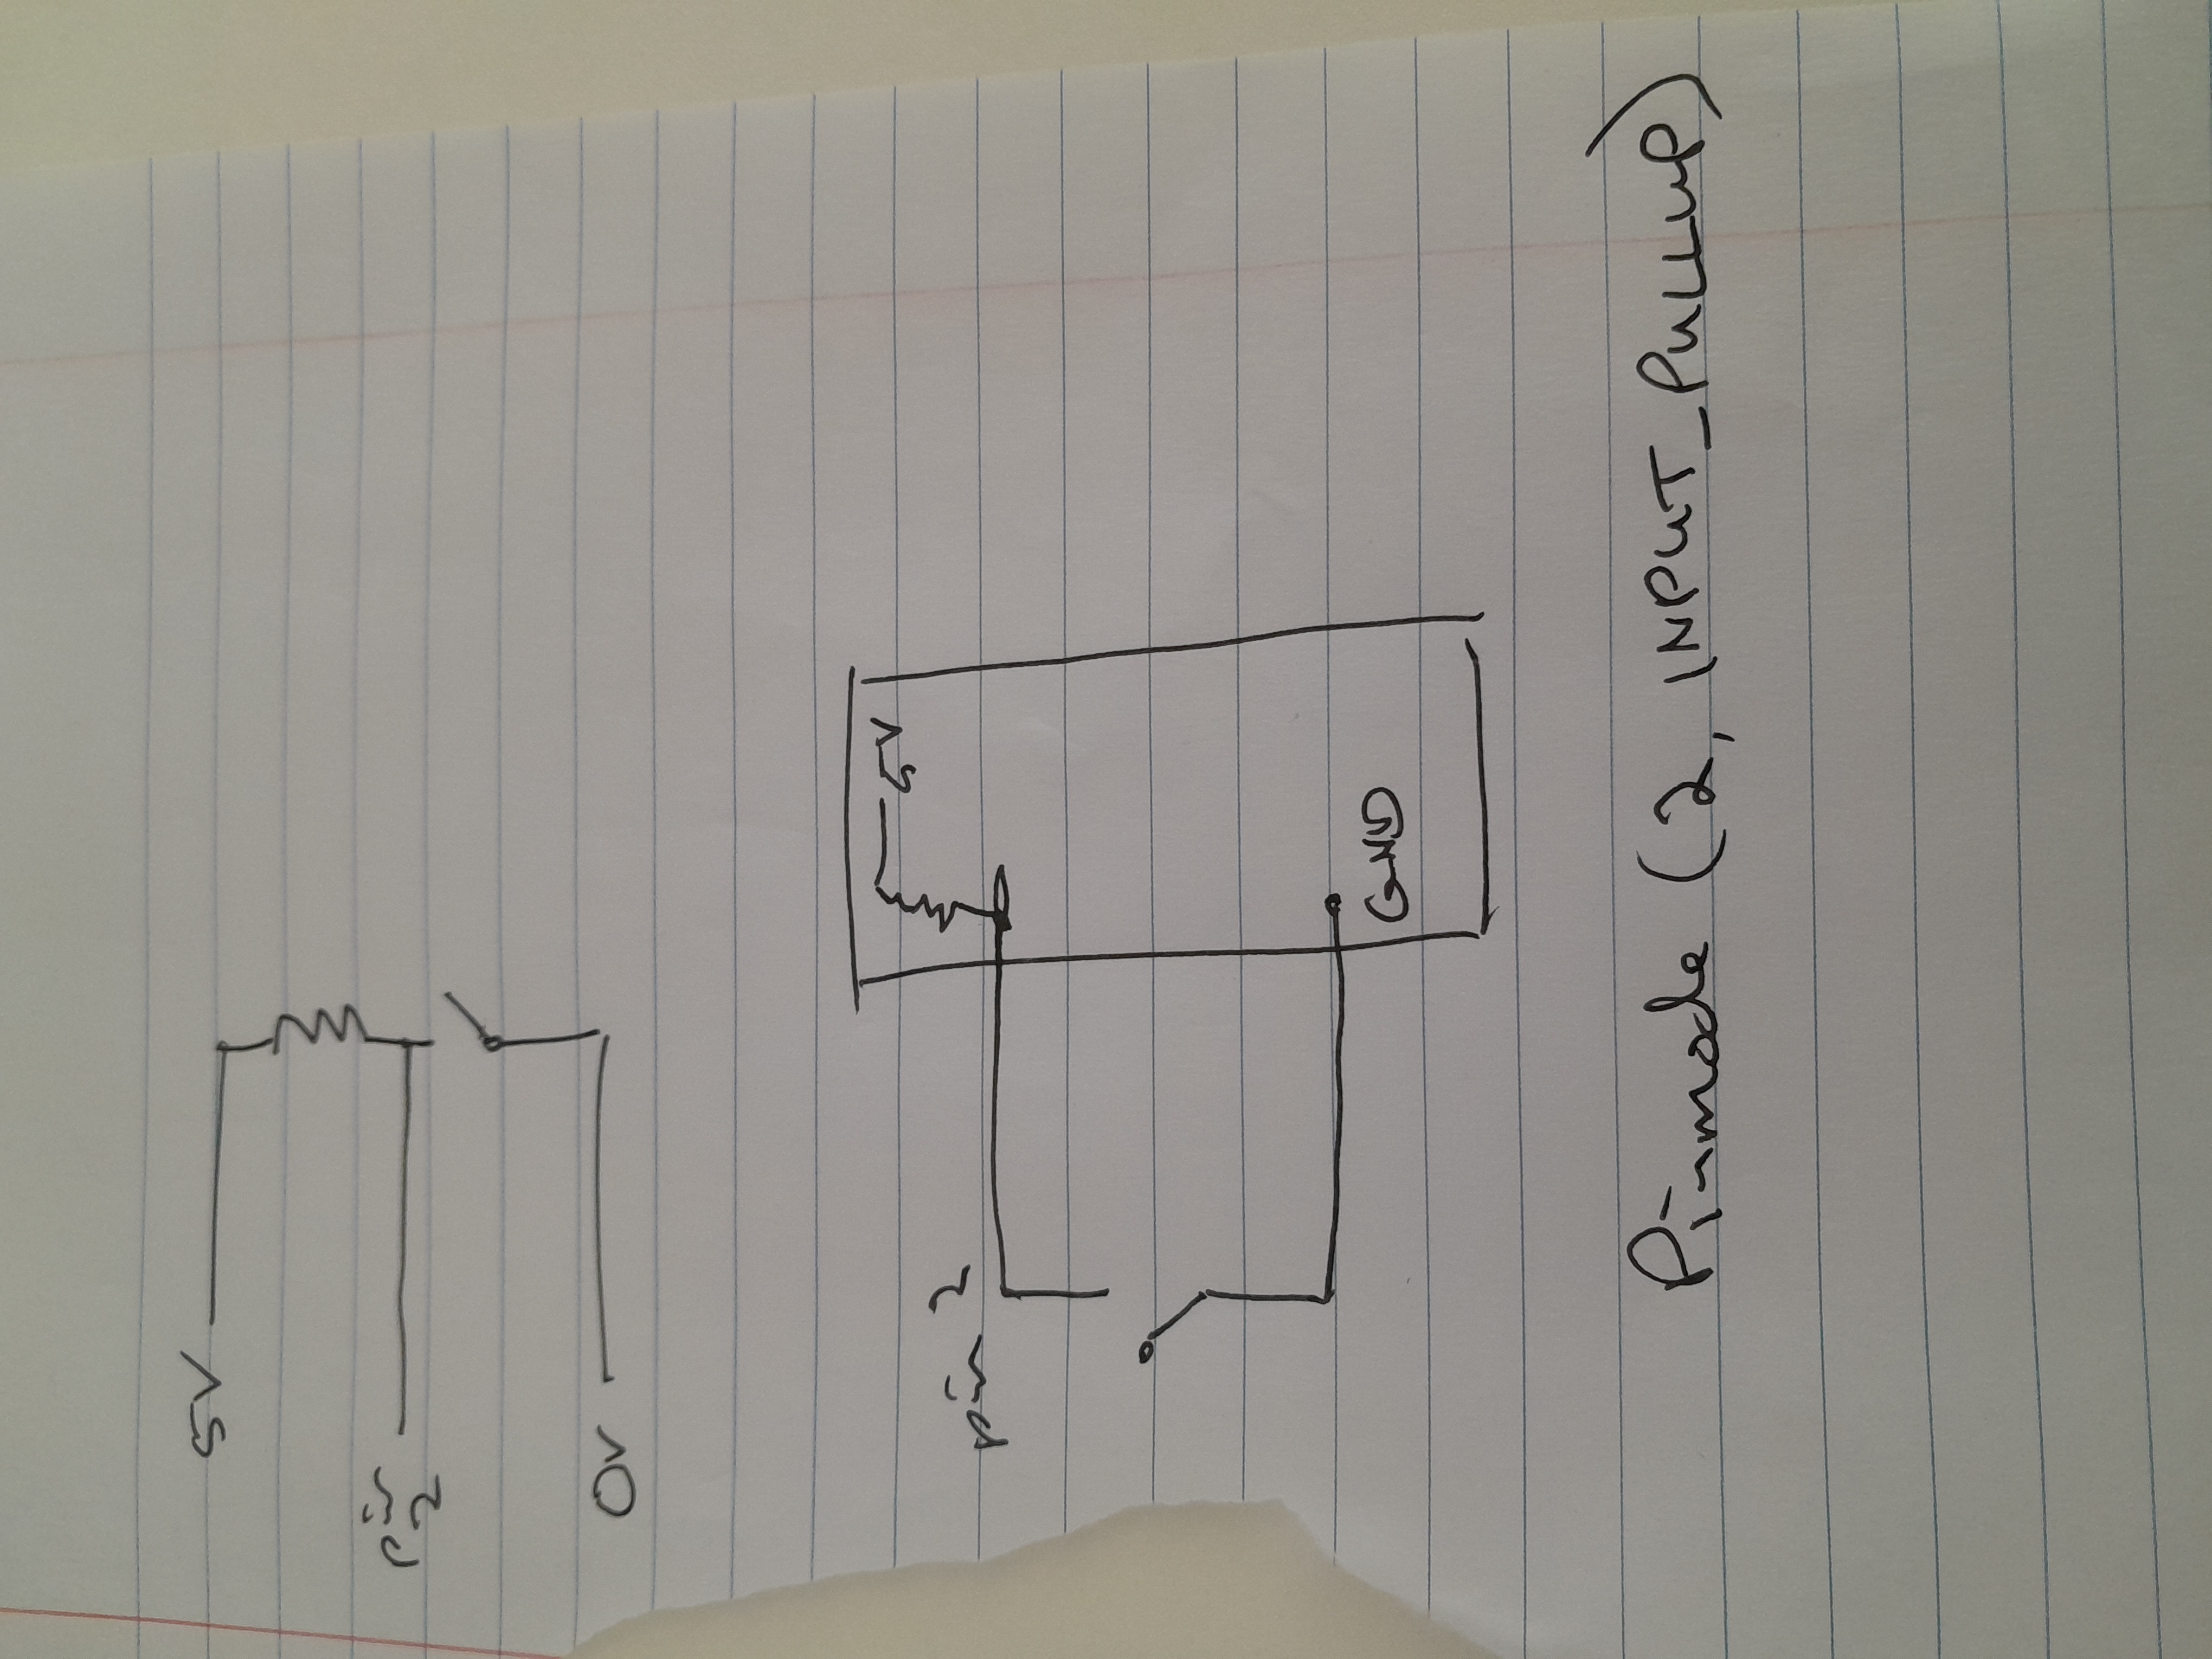 5V
pin
2
0v
5V
pin 2
GND
Pinmode (2, INPUT_PULLUP)